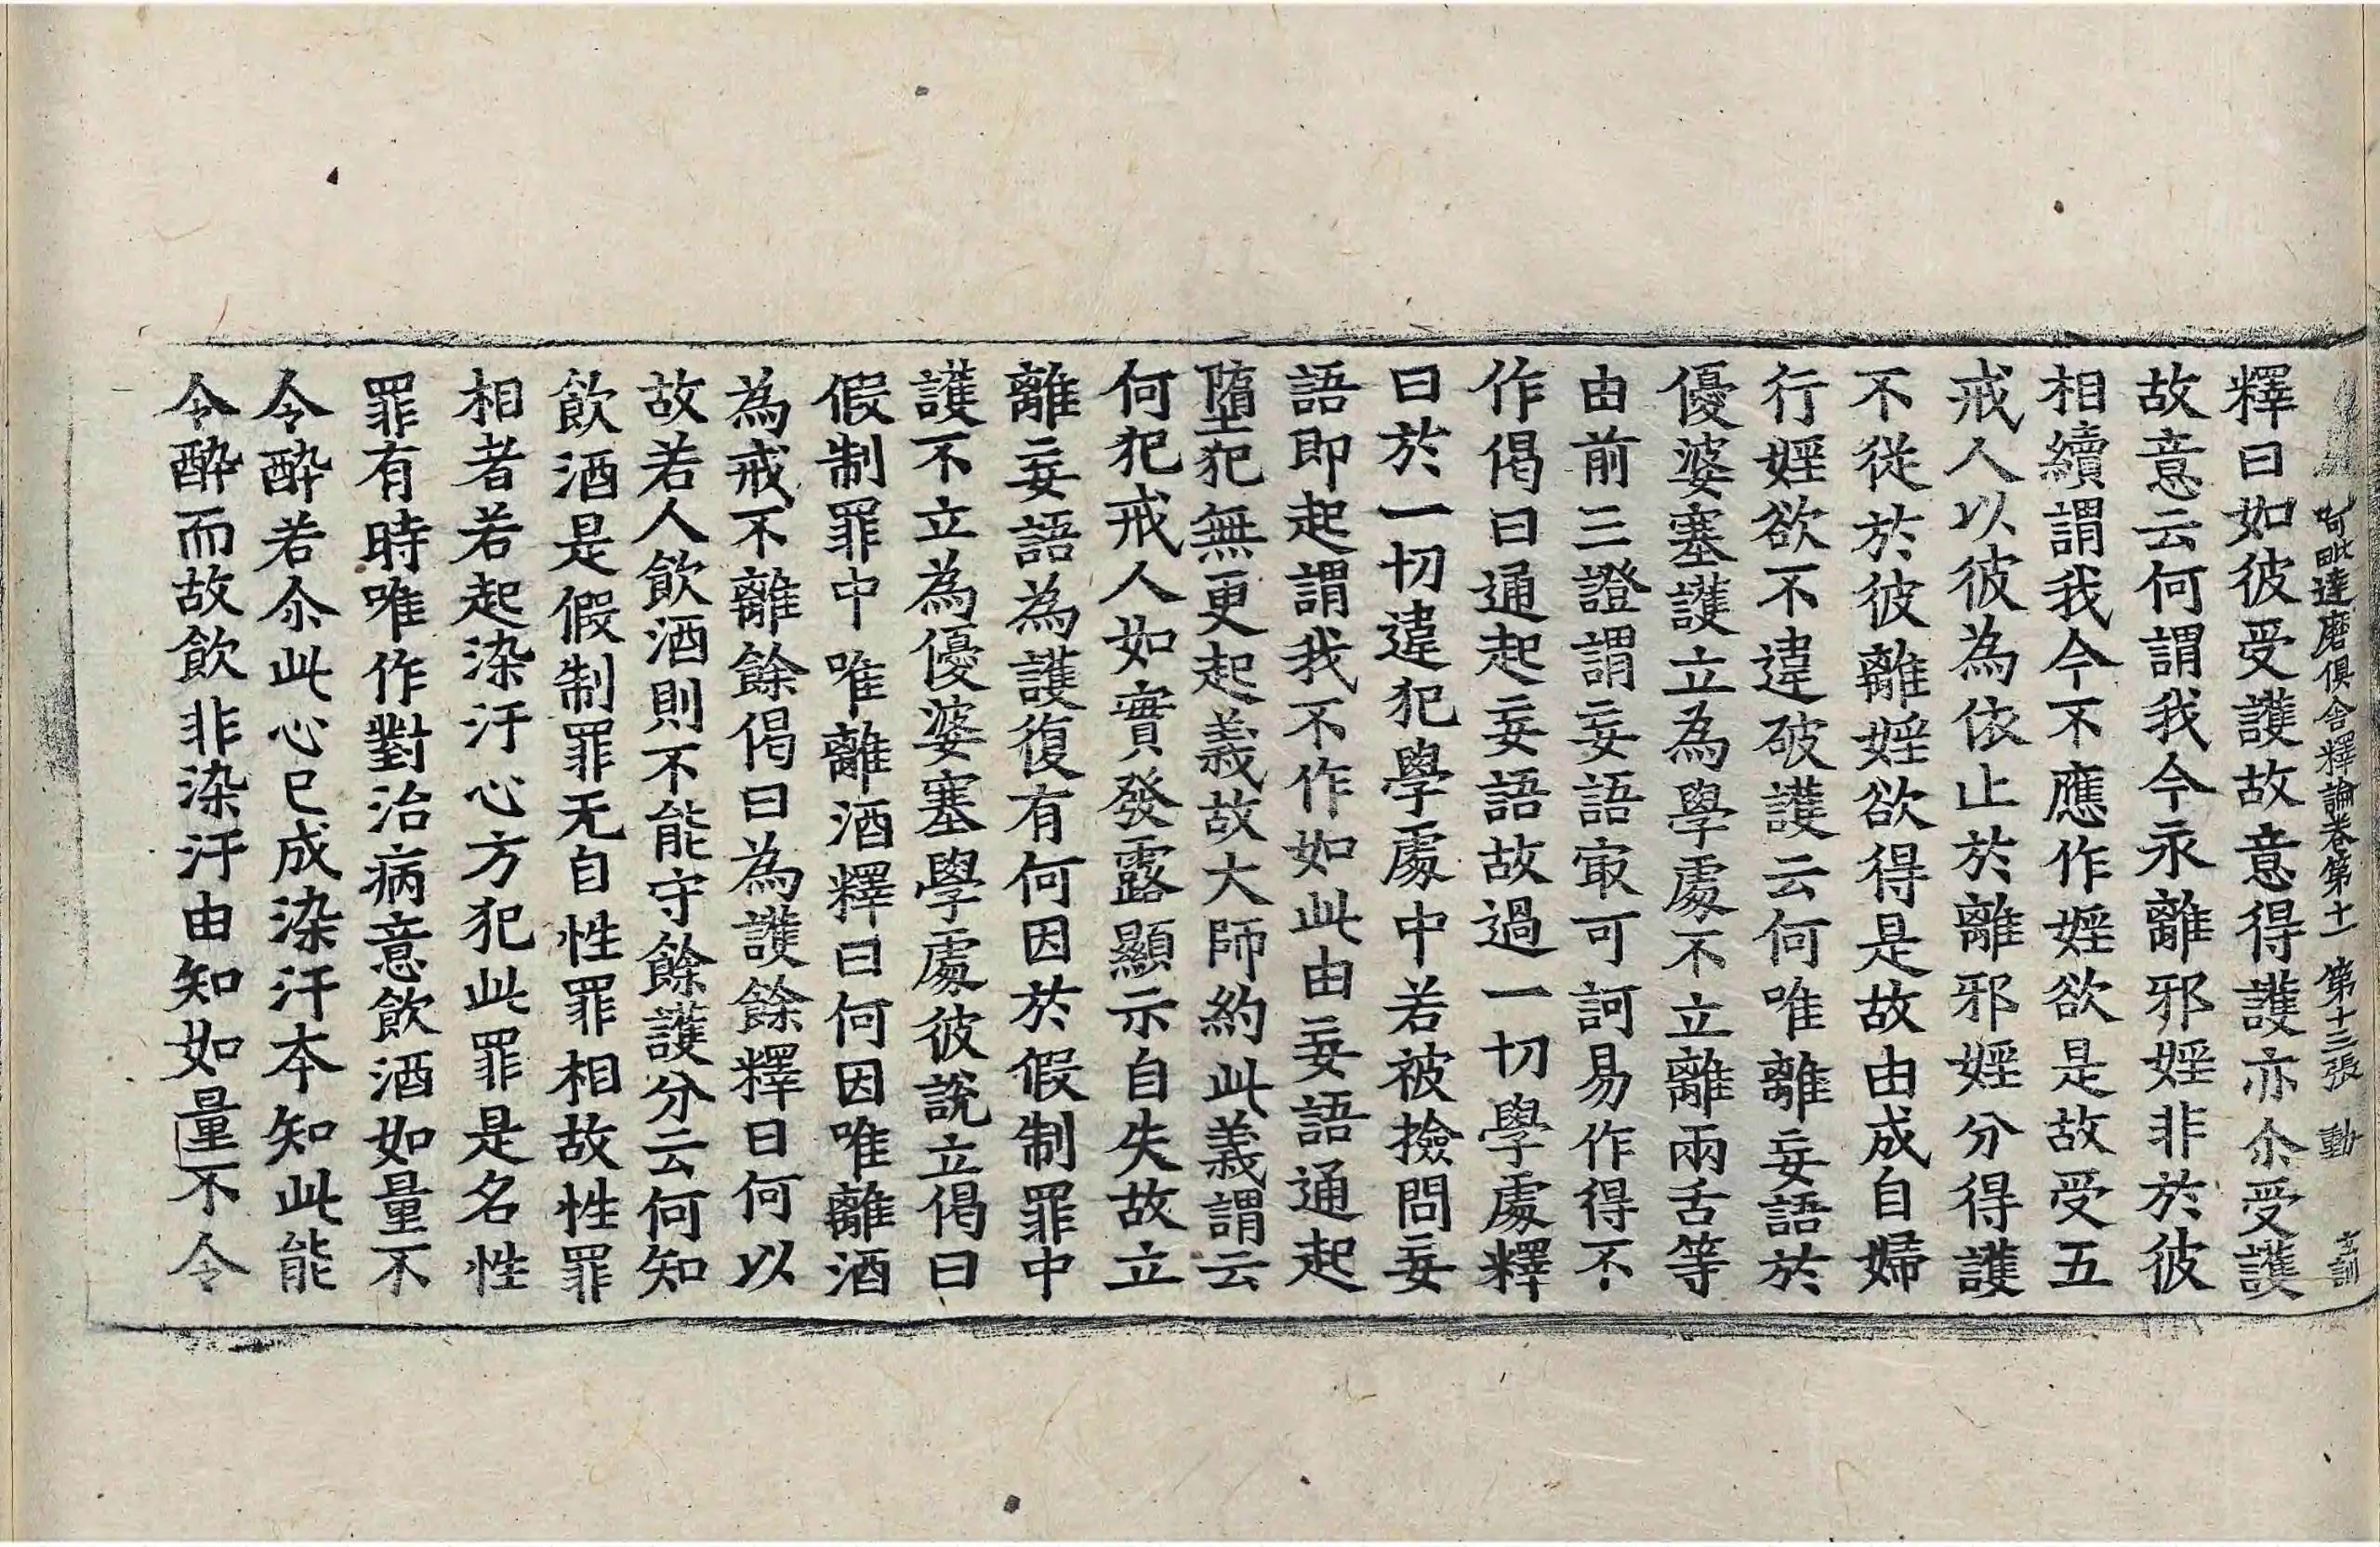 阿毗達磨俱舍釋論卷第十一 第十三張 動 玄訓
釋曰如彼受護故意得護亦尒受護
故意云何謂我今永離邪婬非於彼
相續謂我今不應作婬欲是故受五
戒人以彼為依止於離邪婬分得護
不從於彼離婬欲得是故由成自婦
行婬欲不違破護云何唯離妄語於
優婆塞護立為學處不立離兩舌等
由前三證謂妄語㝡可訶易作得不
作偈曰通起妄語故過一切學處釋
曰於一切違犯學處中若被撿問妄
語即起謂我不作如此由妄語通起
墮犯無更起義故大師約此義謂云
何犯戒人如實發露顯示自失故立
離妄語為護復有何因於假制罪中
護不立為優婆塞學處彼說立偈曰
假制罪中唯離酒釋曰何因唯離酒
為戒不離餘偈曰為護餘釋曰何以
故若人飲酒則不能守餘護分云何知
飲酒是假制罪无自性罪相故性罪
相者若起染汙心方犯此罪是名性
罪有時唯作對治病意飲酒如量不
令醉若尒此心已成染汙本知此能
令醉而故飲非染汙由知如量不令